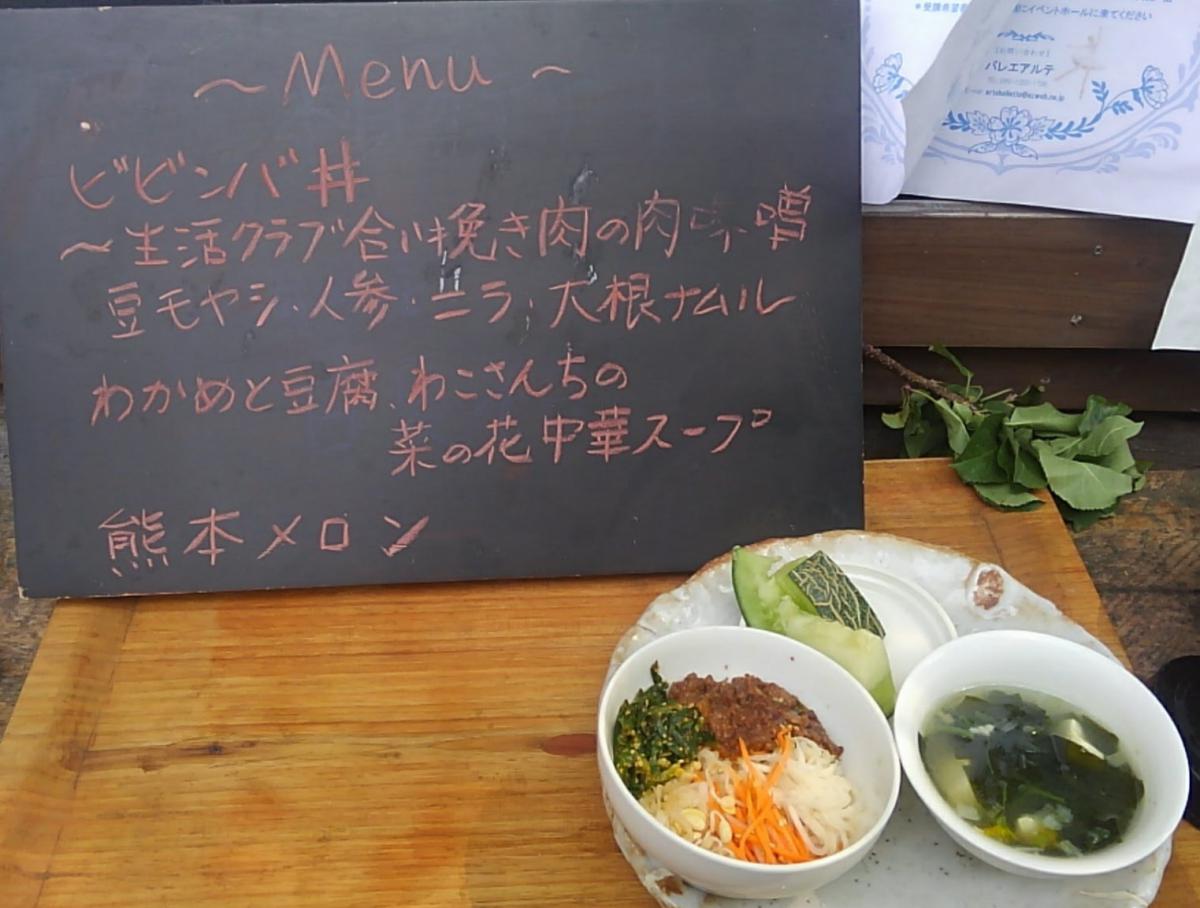 ～Menu～
ビビンバ丼
～生活クラブ合い挽き肉の肉味噌
豆モヤシ・人参・ニラ・大根ナムル
わかめと豆腐、わこさんちの
菜の花中華スープ
熊本メロン
にイベントホールに来てください
バレエアルテ